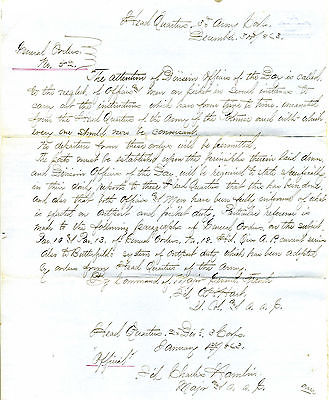 Head Quarters 3d Army Corps
December 31st 1863.
General Orders
No.
The attention of Division Officers of the Day is called
to the neglect of Officers & men on picket in several instances to
carry out the instructions which have from time to time, emanated
from the Head Quarters of the Army of the Potomac and with which
every one should now be conversant.
No departure from these orders will be permitted,
The posts must be established upon the principles therein laid down,
and Division Officers of the Day, will be required to state specifically,
in their daily reports to these Head Quarters that this has been done,
and also that both Officers & Men have been fully informed of what
is expected on outpost and picket duty. Particular reference is
made to the following paragraphs of General Orders, on this subject
Par. 10 & Par. 13. of General Orders, No. 18. Hd. Qrs. A. P. current series
Also to Butterfield's system of outpost duty which has been adopted
by orders from Head Quarters of this Army.
By Command of Major General French
Sd
Lt. Col. & A. A. G.
Head Quarters 2d Div. 3d Corps
January 1863.
Official
Sd Charles Hamlin
Major & A. A. G.